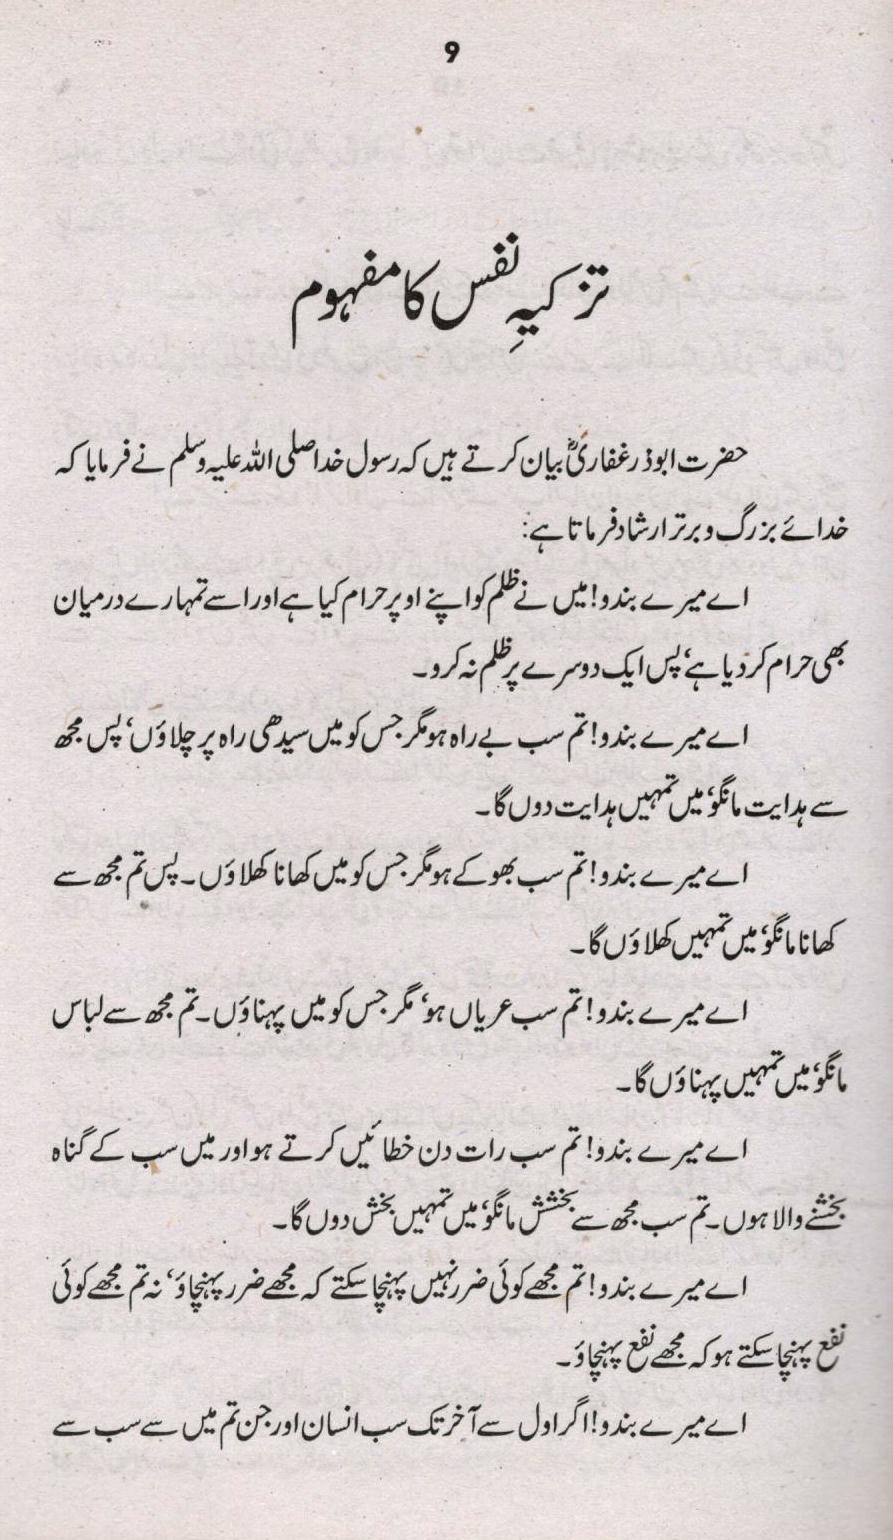 9
تزکیہِ نفس کا مفہوم
حضرت ابوذر غفاریؓ بیان کرتے ہیں کہ رسول خدا صلی اللہ علیہ وسلم نے فرمایا کہ
خدائے بزرگ و برتر ارشاد فرماتا ہے:
اے میرے بندو! میں نے ظلم کو اپنے اوپر حرام کیا ہے اور اسے تمہارے درمیان
بھی حرام کر دیا ہے‘ پس ایک دوسرے پر ظلم نہ کرو۔
اے میرے بندو! تم سب بے راہ ہو مگر جس کو میں سیدھی راہ پر چلاؤں‘ پس مجھ
سے ہدایت مانگو‘ میں تمہیں ہدایت دوں گا۔
اے میرے بندو! تم سب بھوکے ہو مگر جس کو میں کھانا کھلاؤں۔ پس تم مجھ سے
کھانا مانگو‘ میں تمہیں کھلاؤں گا۔
اے میرے بندو! تم سب عریاں ہو‘ مگر جس کو میں پہناؤں۔ تم مجھ سے لباس
مانگو‘ میں تمہیں پہناؤں گا۔
اے میرے بندو! تم سب رات دن خطائیں کرتے ہو اور میں سب کے گناہ
بخشنے والا ہوں۔ تم سب مجھ سے بخشش مانگو‘ میں تمہیں بخش دوں گا۔
اے میرے بندو! تم مجھے کوئی ضرر نہیں پہنچا سکتے کہ مجھے ضرر پہنچاؤ‘ نہ تم مجھے کوئی
نفع پہنچا سکتے ہو کہ مجھے نفع پہنچاؤ۔
اے میرے بندو! اگر اول سے آخر تک سب انسان اور جن تم میں سے سب سے